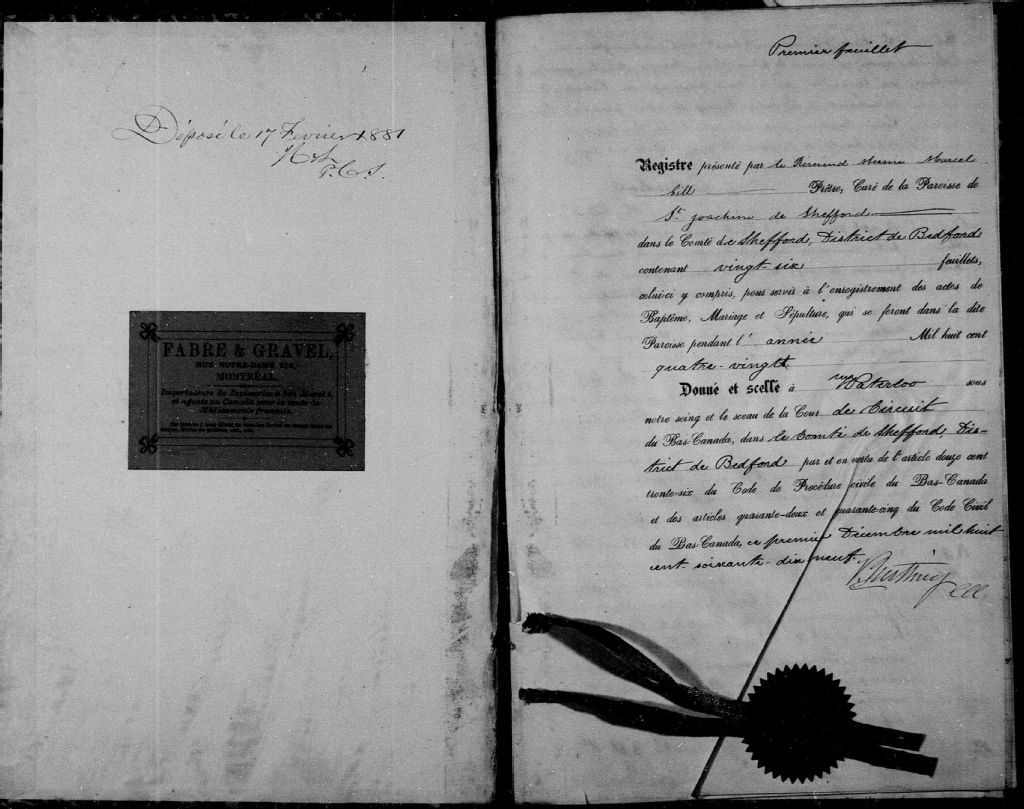 Déposé le 17 Fevrier 1881
P.C.S.
FABRE & GRAVEL,
RUE NOTRE-DAME 219,
MONTRÉAL.
Importateurs de Tapisseries à bon Marché,
et agents au Canada pour la vente de
Médicaments français.
Premier feuillet
Registre présenté par le Reverend Marcel
Gill Prêtre, Curé de la Paroisse de
St. Joachim de Shefford
dans le Comté de Shefford, District de Bedford
contenant vingt-six feuillets,
celui-ci y compris, pour servir à l'enregistrement des actes de
Baptême, Mariage et Sépulture, qui se feront dans la dite
Paroisse pendant l'année Mil huit cent
quatre-vingt.
Donné et scellé à Waterloo sous
notre seing et le sceau de la Cour de Circuit
du Bas-Canada, dans le Comté de Shefford, Dis-
trict de Bedford par et en vertu de l'article douze cent
trente-six du Code de Procédure civile du Bas-Canada
et des articles quarante-deux et quarante-cinq du Code Civil
du Bas-Canada, ce premier Décembre mil huit
cent soixante-dix neuf.